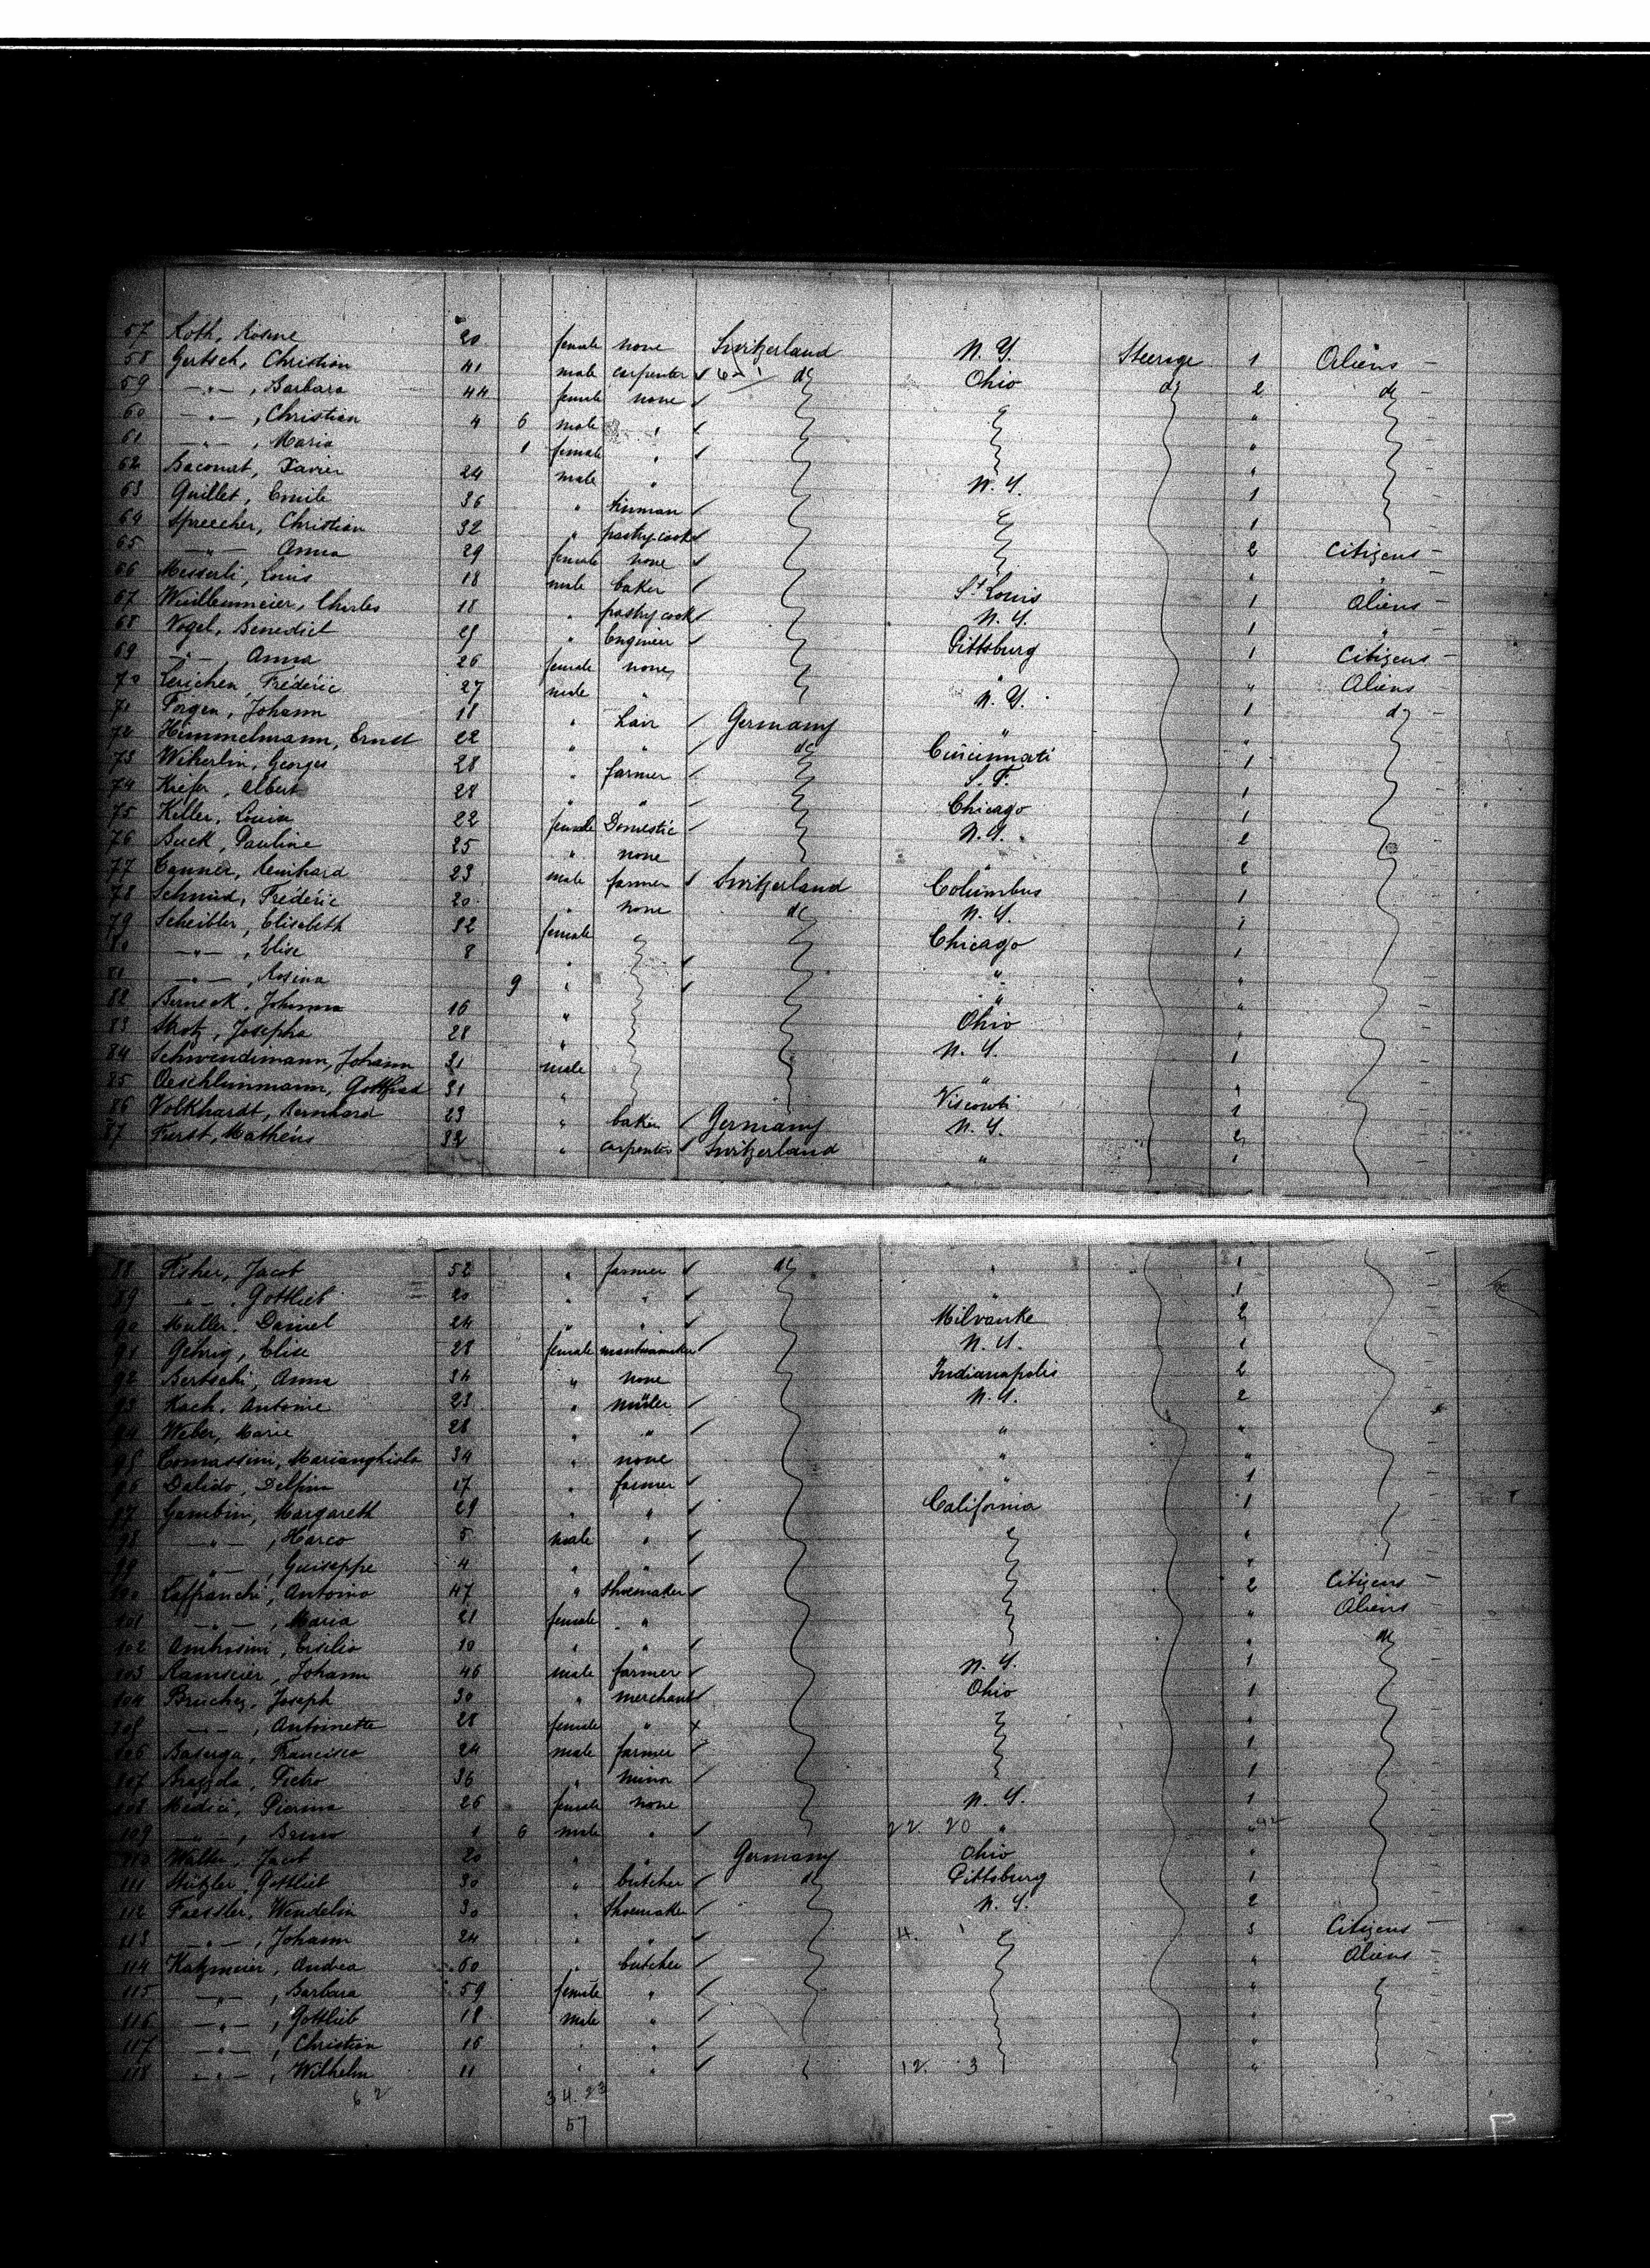 57 Roth, Rosine 20 female none Switzerland N. Y. Steerage 1 Aliens -
58 Gertsch, Christian 41 male carpenter do Ohio do 2 do
59 -"-, Barbara 44 female none "
60 -"-, Christian 4 6 male " "
61 -"-, Maria 1 female " "
62 Xavier 24 male " N. Y. 1
63 Quillet, Emile 36 " 1
64 Sprecher, Christian 32 " pastry cook 2 Citizens -
65 -"- Anna 29 female none " "
66 Messerli, Louis 18 male baker St Louis 1 Aliens -
67 Wuilleumeier, Charles 18 " pastry cook N. Y. 1 "
68 Vogel, Benedict " Engineer Pittsburg 1 Citizens -
69 -"-, Anna 26 female none " " Aliens
70 Frédéric 27 male " N. Y. 1 do -
71 Johann 18 " Germany " "
72 Himmelmann, Ernst 22 " " do Cincinnati 1
73 Georges 28 " farmer S. F. 1
74 Kiefer, Albert 28 " " Chicago 1
75 Keller, Louise 22 female Domestic N. Y. 2
76 Buck, Pauline 25 " none " 2
77 Reinhard 23 male farmer Switzerland Columbus 1
78 Schmid, Frédéric 20 " none do N. Y. 1
79 Scheibler, Elisabeth 32 female Chicago 1
80 -"-, Elise 8 " " "
81 -"-, Rosina 9 " " "
82 Berneck, Johanna 16 " Ohio "
83 Strotz, Josepha 28 " N. Y. 1
84 Schwendimann, Johann 31 male " "
85 Oeschlimmann, Gottfried 31 " Visconti 1
86 Volkhardt, Bernhard 23 " baker Germany N. Y. 2
87 Furst, Mathéus 32 " carpenter Switzerland " 1
88 Fisher, Jacob 52 " farmer do " 1
89 -"-, Gottlieb 20 " " " 1
90 Muller, Daniel 24 " " Milvauke 2
91 Gehrig, Elise 28 female mantuamaker N. Y. 1
92 Bertschi, Anna 34 " none Indianapolis 2
93 Koch, Antoine 23 " N. Y. 2
94 Weber, Marie 28 " " " "
95 34 " none " "
96 Dalido, Delfina 17 " farmer " 1
97 Gambini, Margareth 29 " " California 1
98 -"-, Marco 5 male " "
99 -"-, Guiseppe 4 " " "
100 Caffranchi, Antonio 47 " Shoemaker 2 Citizens -
101 -"-, Maria 21 female " " Aliens -
102 Ambrosini, Ersilia 10 " " " do
103 Ramseier, Johann 46 male farmer N. Y. 1
104 Bruchez, Joseph 30 " merchant Ohio 1
105 -"-, Antoinette 28 female " "
106 Francisco 24 male farmer 1
107 Pietro 36 " minor 1
108 Medici, Pierina 26 female none N. Y. 1
109 -"-, Bruno 1 6 male " 22 20 " "
110 Walter, Jacob 20 " " Germany Ohio "
111 Gottlieb 30 " butcher do Pittsburg 1
112 Faessler, Wendelin 30 " Shoemaker N. Y. 2
113 -"-, Johann 24 " " 4. 1 3 Citizens -
114 Katzmeier, Andrea 60 " butcher " Aliens -
115 -"-, Barbara 59 female " "
116 -"-, Gottlieb 18 male " "
117 -"-, Christian 16 " " "
118 -"-, Wilhelm 11 " " 12. 3 "
62 34. 23
57